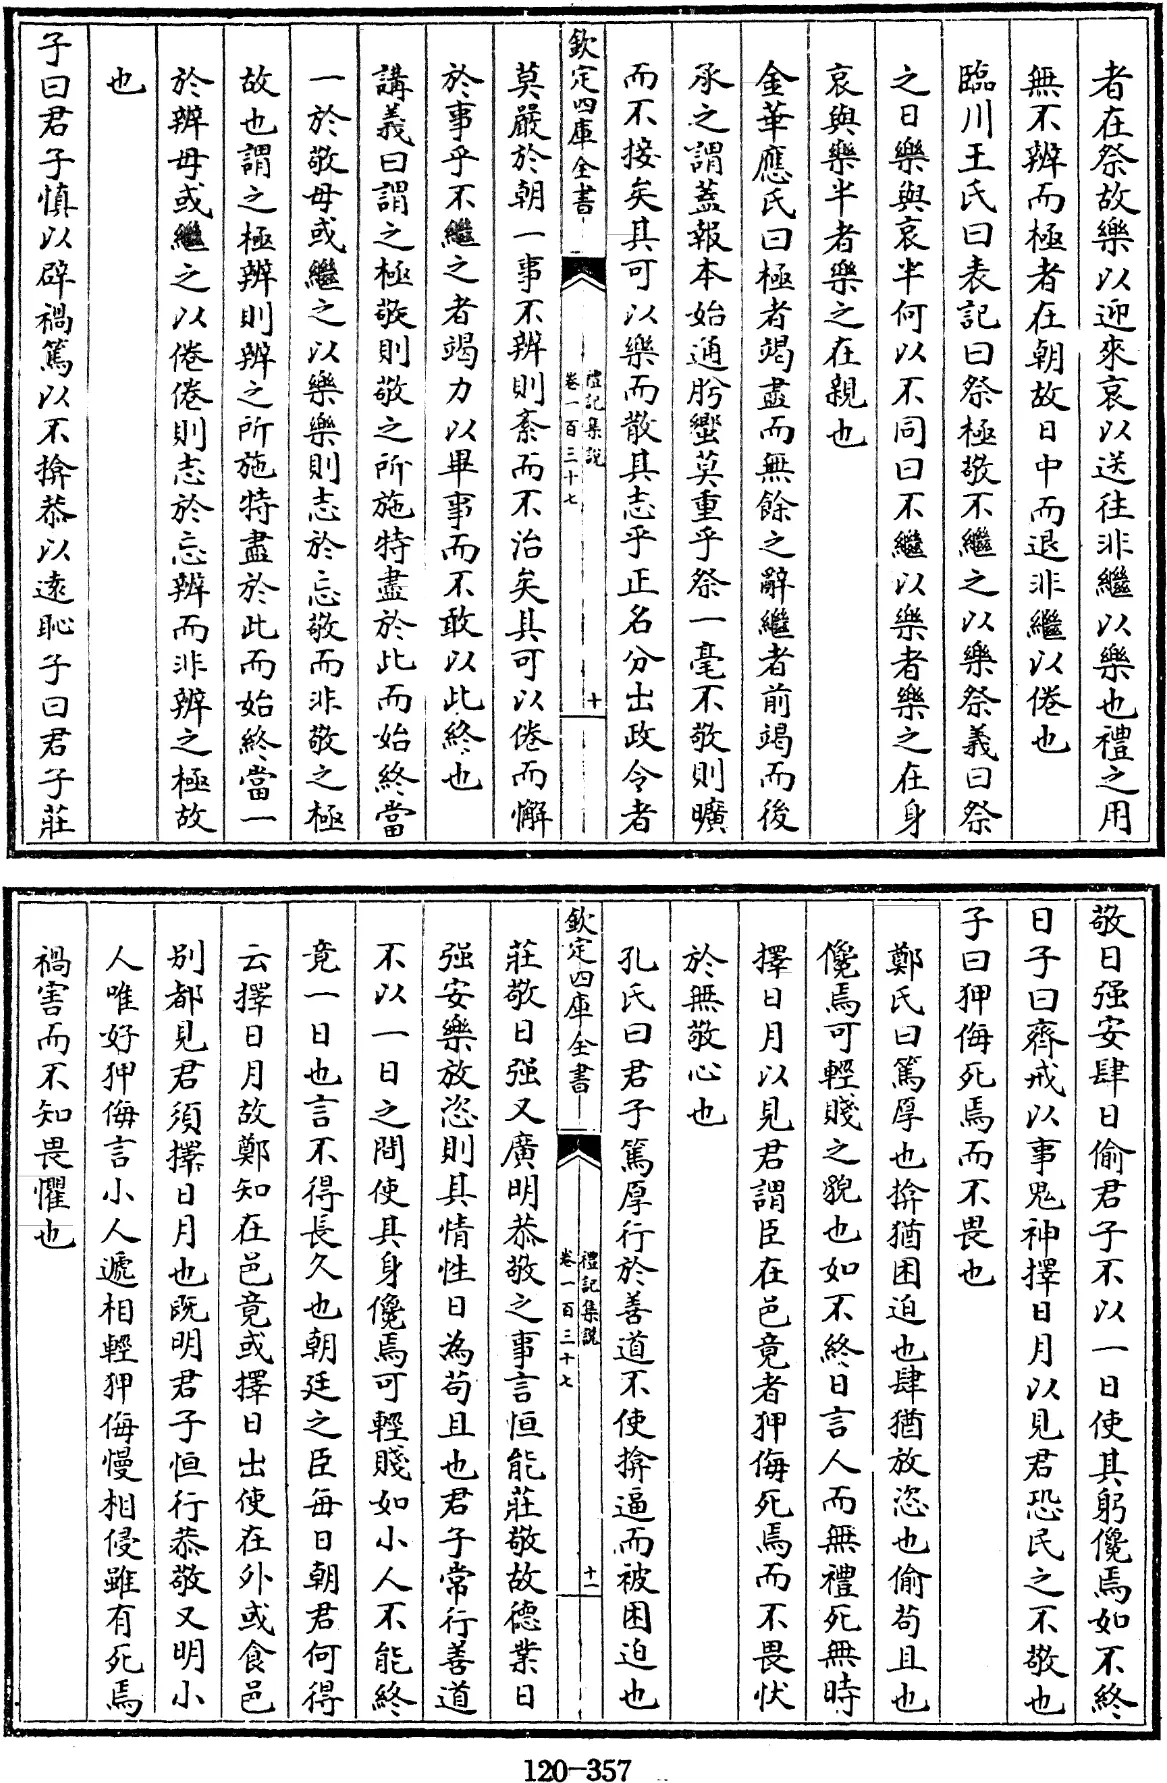 者在祭故樂以迎來哀以送往非繼以樂也禮之用
無不辨而極者在朝故日中而退非繼以倦也
臨川王氏曰表記曰祭極敬不繼之以樂祭義曰祭
之日樂與哀半何以不同曰不繼以樂者樂之在身
哀與樂半者樂之在親也
金華應氏曰極者竭盡而無餘之辭繼者前竭而後
承之謂蓋報本始通肸蠁莫重乎祭一毫不敬則曠
而不接矣其可以樂而散其志乎正名分出政令者
欽定四庫全書
禮記集說
卷一百三十七
十
莫嚴於朝一事不辨則紊而不治矣其可以倦而懈
於事乎不繼之者竭力以畢事而不敢以此終也
講義曰謂之極敬則敬之所施特盡於此而始終當
一於敬毋或繼之以樂樂則志於忘敬而非敬之極
故也謂之極辨則辨之所施特盡於此而始終當一
於辨毋或繼之以倦倦則志於忘辨而非辨之極故
也
子曰君子慎以辟禍篤以不揜恭以遠恥子曰君子莊
敬日强安肆日偷君子不以一日使其躬儳焉如不終
日子曰齊戒以事鬼神擇日月以見君恐民之不敬也
子曰狎侮死焉而不畏也
鄭氏曰篤厚也揜猶困迫也肆猶放恣也偷苟且也
儳焉可輕賤之貌也如不終日言人而無禮死無時
擇日月以見君謂臣在邑竟者狎侮死焉而不畏忕
於無敬心也
孔氏曰君子篤厚行於善道不使揜逼而被困迫也
欽定四庫全書
禮記集說
卷一百三十七
十一
莊敬日强又廣明恭敬之事言恒能莊敬故德業日
强安樂放恣則其情性日為苟且也君子常行善道
不以一日之間使其身儳焉可輕賤如小人不能終
竟一日也言不得長久也朝廷之臣每日朝君何得
云擇日月故鄭知在邑竟或擇日出使在外或食邑
別都見君須擇日月也既明君子恒行恭敬又明小
人唯好狎侮言小人遞相輕狎侮慢相侵雖有死焉
禍害而不知畏懼也
120-357